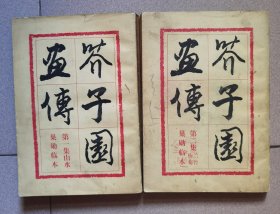 芥子園
畫傳
第一集山水
巢勋临本
芥子園
畫傳
第二集
巢勋临本